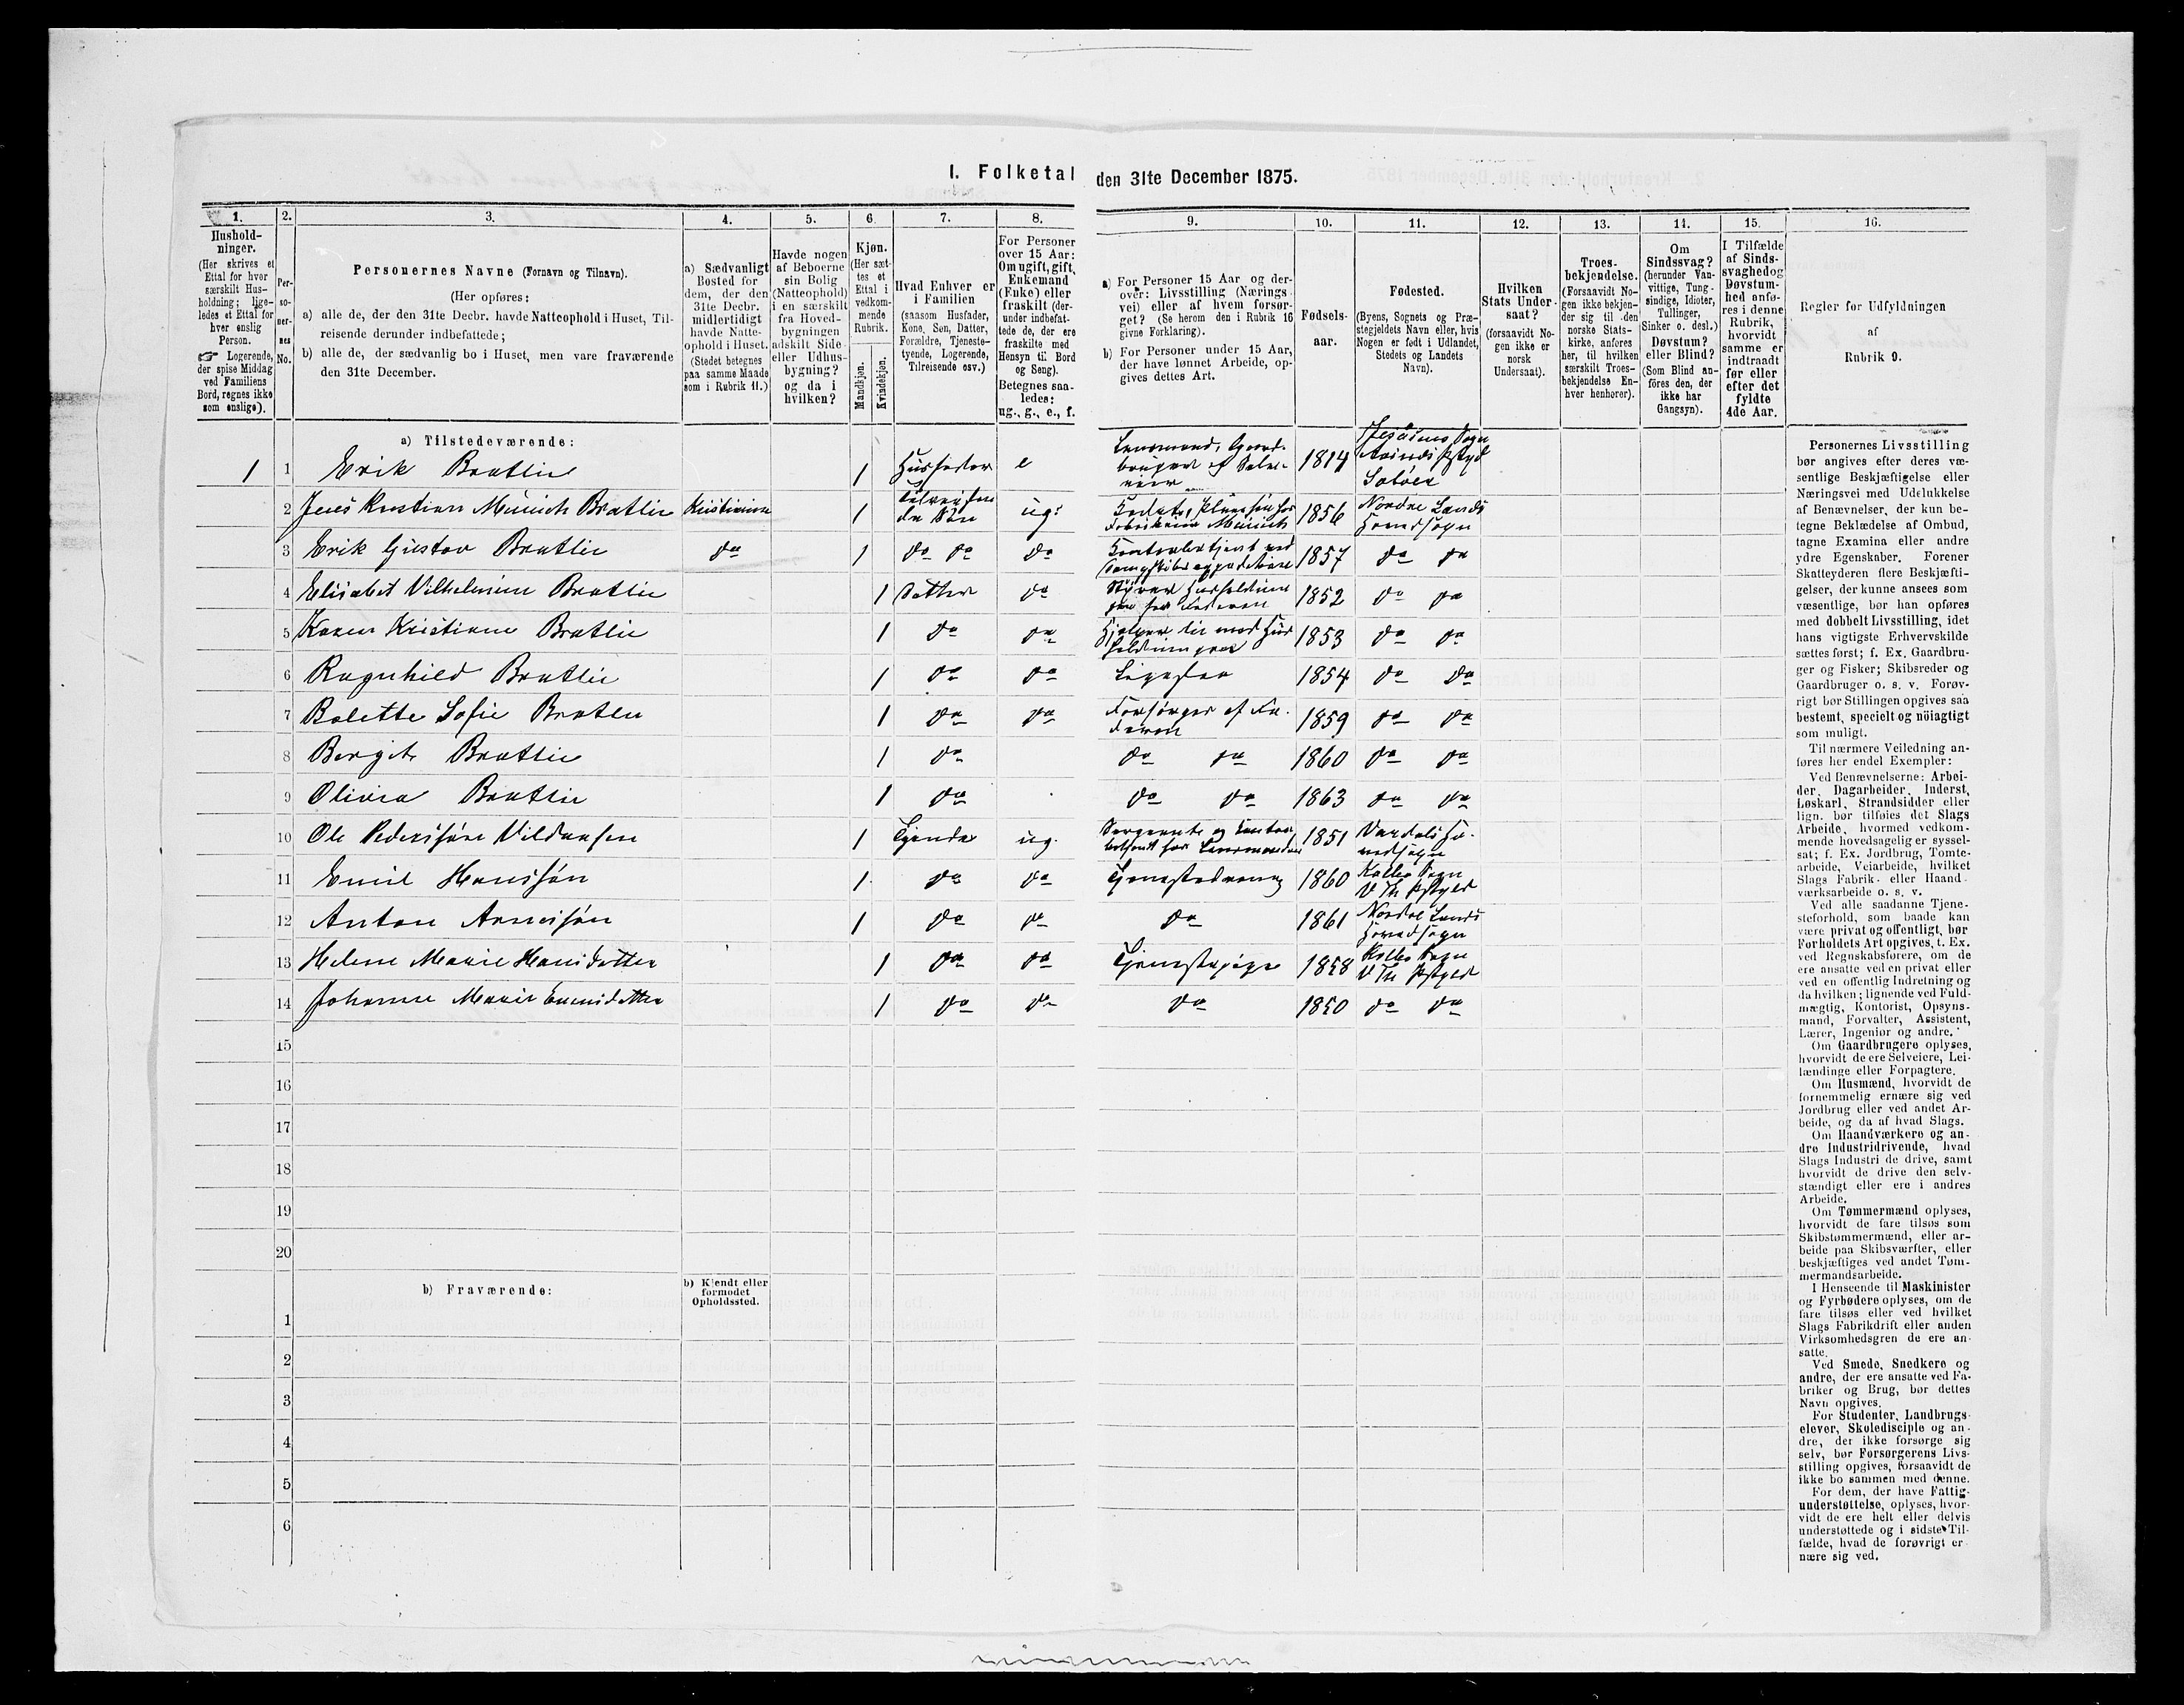 I. Folketal den 31te December 1875.
1.
Hushold-
ninger.
(Her skrives et
Ettal for hver
særskilt Hus-
holdning; lige-
ledes et Ettal for
hver enslig
Person.
☞ Logerende,
der spise Middag
ved Familiens
Bord, regnes ikke
som enslige).
2.
Per-
so-
ner-
nes
No.
3.
Personernes Navne (Fornavn og Tilnavn).
(Her opføres:
a) alle de, der den 31te Decbr. havde Natteophold i Huset, Til-
reisende derunder indbefattede;
b) alle de, der sædvanlig bo i Huset, men vare fraværende
den 31te December.
4.
a) Sædvanligt
Bosted for
dem, der den
31te Decbr.
midlertidigt
havde Natte-
ophold i Huset.
(Stedet betegnes
paa samme Maade
som i Rubrik 11.)
5.
Havde nogen
af Beboerne
sin Bolig
(Natteophold)
i en særskilt
fra Hoved-
bygningen
adskilt Side-
eller Udhus-
bygning?
og da i
hvilken?
6.
Kjøn.
(Her sæt-
tes et
Ettal i
vedkom-
mende
Rubrik.
Mandkjøn.
Kvindekjøn.
7.
Hvad Enhver er
i Familien
(saasom Husfader,
Kone, Søn, Datter,
Forældre, Tjeneste-
tyende, Logerende,
Tilreisende osv.)
8.
For Personer
over 15 Aar:
Om ugift, gift,
Enkemand
(Enke) eller
fraskilt (der-
under indbefat-
tede de, der ere
fraskilte med
Hensyn til Bord
og Seng).
Betegnes saa-
ledes:
ug., g., e., f.
9.
a) For Personer 15 Aar og der-
over: Livsstilling (Nærings-
vei) eller af hvem forsør-
get? (Se herom den i Rubrik 16
givne Forklaring).
b) For Personer under 15 Aar,
der have lønnet Arbeide, op-
gives dettes Art.
10.
Fødsels-
aar.
11.
Fødested.
(Byens, Sognets og Præ-
stegjeldets Navn eller, hvis
Nogen er født i Udlandet,
Stedets og Landets
Navn).
12.
Hvilken
Stats Under-
saat?
(forsaavidt No-
gen ikke er
norsk
Undersaat).
13.
Troes-
bekjendelse.
(Forsaavidt No-
gen ikke bekjen-
der sig til den
norske Stats-
kirke, anføres
her, til hvilken
særskilt Troes-
bekjendelse En-
hver henhører).
14.
Om
Sindssvag?
(herunder Van-
vittige, Tung-
sindige, Idioter,
Tullinger,
Sinker o. desl.)
Døvstum?
eller Blind?
(Som Blind an-
föres den, der
ikke har
Gangsyn).
15.
I Tilfælde
af Sinds-
svaghed og
Døvstum-
hed anfø-
res i denne
Rubrik,
hvorvidt
samme er
indtraadt
før eller
efter det
fyldte
4de Aar.
16.
Regler for Udfyldningen
af
Rubrik 9.
a) Tilstedeværende:
1 1 Erik Bratlie 1 Husfader e Lensmand, Gaard-
bruger 1814 Sogn
2 Jens Kristian Münich Bratlie Kristiania 1 Søn ug: Kadet, 1856 Nordre Lands
3 Erik Gustav Bratlie do 1 do do do 1857 do do
4 Elisabet Vilhelmine Bratlie 1 Datter do Styrer 1852 do do
5 Karen Kristiane Bratlie 1 do do Hjelper til med Hus- 1853 do do
6 Ragnhild Bratlie 1 do do Ligesaa 1854 do do
7 Bolette Sofie Bratlie 1 do do Forsørges af Fa-
deren 1859 do do
8 Bergit Bratlie 1 do do do 1860 do do
9 Olivia Bratlie 1 do do do 1863 do do
10 Ole Pederssøn 1 Tjener ug. Sergeant og Kontor- 1851 Vardals
11 Emil Hanssøn 1 do do Tjenestedreng 1860 Kolbo Sogn
12 Anton Arnessøn 1 do do do 1861 Nordre Lands
13 Helene Marie Hansdatter 1 do do Tjenestepige 1858 Kolbo Sogn
14 Johanne Marie Evensdatter 1 do do do 1850 do do
15
16
17
18
19
20
b) Fraværende:
b) Kjendt eller
formodet
Opholdssted.
1
2
3
4
5
6
Personernes Livsstilling
bør angives efter deres væ-
sentlige Beskjæftigelse eller
Næringsvei med Udelukkelse
af Benævnelser, der kun be-
tegne Beklædelse af Ombud,
tagne Examina eller andre
ydre Egenskaber. Forener
Skatteyderen flere Beskjæfti-
gelser, der kunne ansees som
væsentlige, bør han opføres
med dobbelt Livsstilling, idet
hans vigtigste Erhvervskilde
sættes først; f. Ex. Gaardbru-
ger og Fisker; Skibsreder og
Gaardbruger o. s. v. Forøv-
rigt bør Stillingen opgives saa
bestemt, specielt og nöiagtigt
som muligt.
Til nærmere Veiledning an-
føres her endel Exempler:
Ved Benævnelserne: Arbei-
der, Dagarbeider, Inderst,
Løskarl, Strandsidder eller
lign. bør tilføies det Slags
Arbeide, hvormed vedkom-
mende hovedsagelig er syssel-
sat; f. Ex. Jordbrug, Tomte-
arbeide, Veiarbeide, hvilket
Slags Fabrik- eller Haand-
værksarbeide o. s. v.
Ved alle saadanne Tjene-
steforhold, som baade kan
være privat og offentligt, bør
Forholdets Art opgives, t. Ex.
ved Regnskabsførere, om de
ere ansatte ved en privat eller
ved en offentlig Indretning og
da hvilken; lignende ved Fuld-
mægtig, Kontorist, Opsyns-
mand, Forvalter, Assistent,
Lærer, Ingeniør og andre.
Om Gaardbrugere oplyses,
hvorvidt de ere Selveiere, Lei-
lændinge eller Forpagtere.
Om Husmænd, hvorvidt de
fornemmelig ernære sig ved
Jordbrug eller ved andet Ar-
beide, og da af hvad Slags.
Om Haandværkere og an-
dre Industridrivende, hvad
Slags Industri de drive, samt
hvorvidt de drive den selv-
stændigt eller ere i andres
Arbeide.
Om Tømmermænd oplyses,
hvorvidt de fare tilsøs som
Skibstømmermænd, eller ar-
beide paa Skibsværfter, eller
beskjæftiges ved andet Tøm-
mermandsarbeide.
I Henseende til Maskinister
og Fyrbødere oplyses, om de
fare tilsøs eller ved hvilket
Slags Fabrikdrift eller anden
Virksomhedsgren de ere an-
satte.
Ved Smede, Snedkere og
andre, der ere ansatte ved Fa-
briker og Brug, bør dettes
Navn opgives.
For Studenter, Landbrugs-
elever, Skoledisciple og an-
dre, der ikke forsørge sig
selv, bør Forsørgerens Livs-
stilling opgives, forsaavidt de
ikke bo sammen med denne.
For dem, der have Fattig-
understøttelse, oplyses, hvor-
vidt de ere helt eller delvis
understøttede og i sidste Til-
fælde, hvad de forøvrigt er-
nære sig ved.